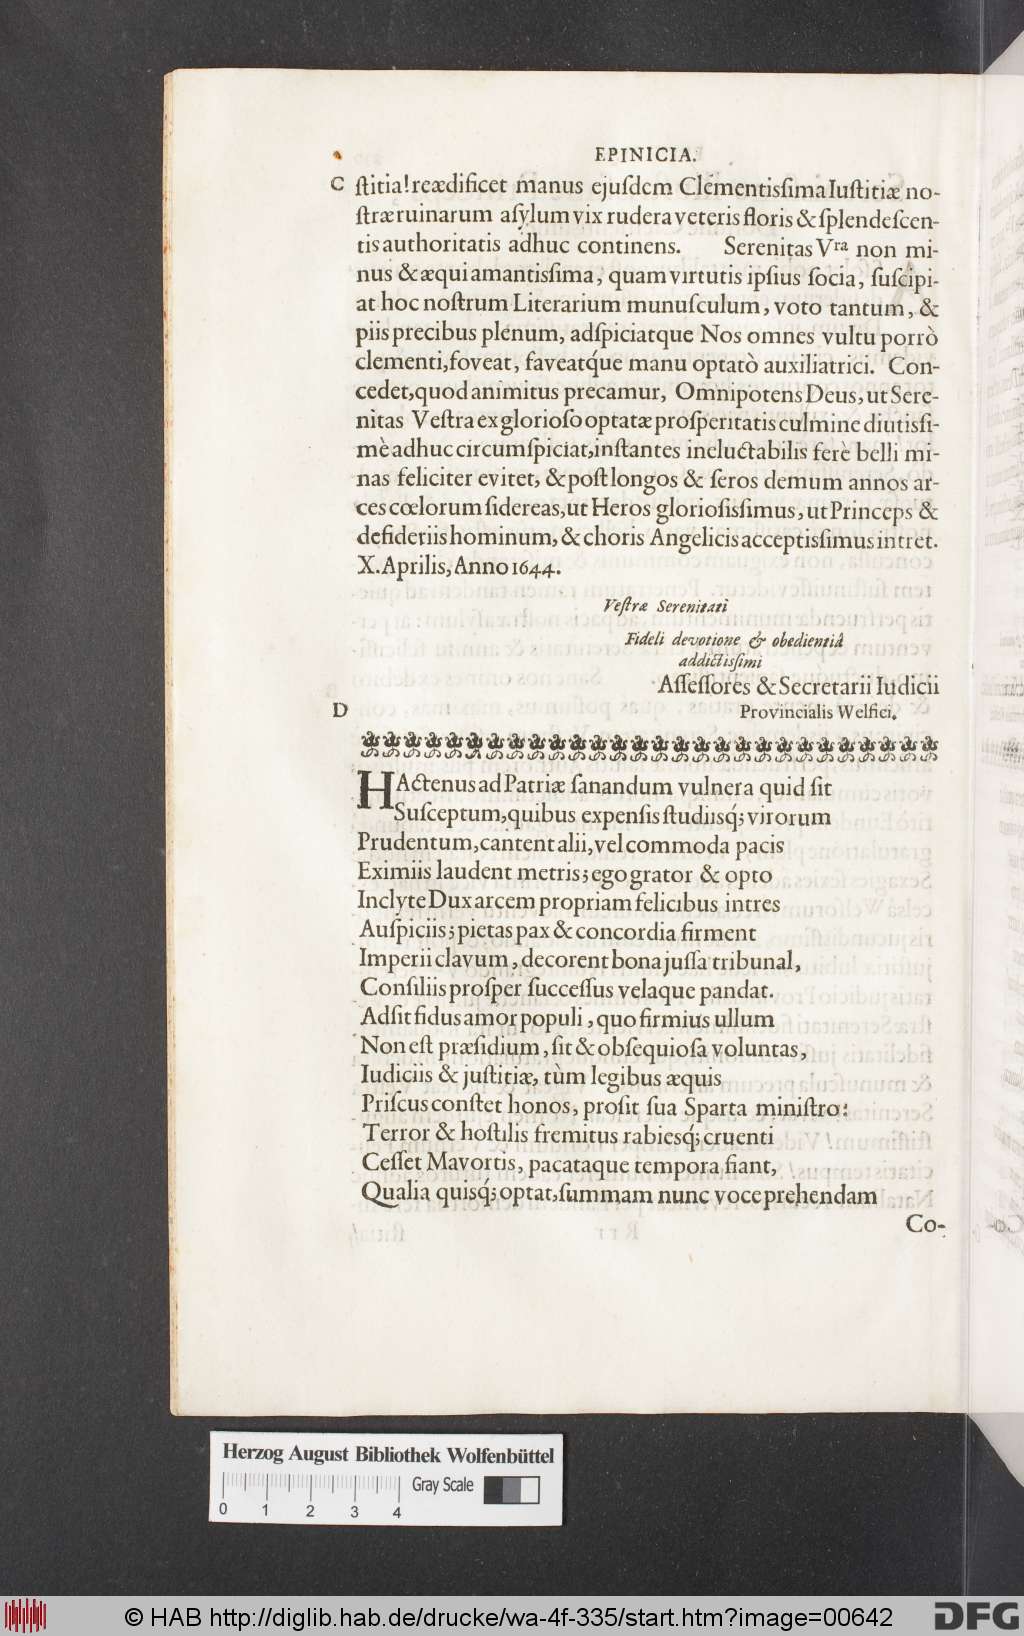 EPINICIA.
C ſtitia! reædificet manus ejuſdem Clementiſſima Iuſtitiæ no-
ſtræ ruinarum aſylum vix rudera veteris floris & ſplendeſcen-
tis authoritatis adhuc continens. Serenitas Vra non mi-
nus & æqui amantissima, quam virtutis ipſius ſocia, ſuſcipi-
at hoc noſtrum Literarium munuſculum, voto tantum, &
piis precibus plenum, adſpiciatque Nos omnes vultu porrò
clementi, foveat, faveatq́ue manu optatò auxiliatrici. Con-
cedet, quod animitus precamur, Omnipotens Deus, ut Sere-
nitas Veſtra ex glorioſo optatæ proſperitatis culmine diutiſſi-
mè adhuc circumſpiciat, inſtantes ineluctabilis ferè belli mi-
nas feliciter evitet, & poſt longos & ſeros demum annos ar-
ces cœlorum ſidereas, ut Heros glorioſiſſimus, ut Princeps &
deſideriis hominum, & choris Angelicis acceptiſſimus intret.
X. Aprilis, Anno 1644.
Veſtræ Serenitati
Fideli devotione & obedientiâ
addictiſſimi
Aſſeſſores & Secretarii Iudicii
D Provincialis Welfici.
HActenus ad Patriæ ſanandum vulnera quid ſit
Suſceptum, quibus expenſis ſtudiisq́; virorum
Prudentum, cantent alii, vel commoda pacis
Eximiis laudent metris; ego grator & opto
Inclyte Dux arcem propriam felicibus intres
Auſpiciis; pietas pax & concordia firment
Imperii clavum, decorent bona juſſa tribunal,
Conſiliis proſper ſucceſſus velaque pandat.
Adſit fidus amor populi, quo firmius ullum
Non eſt præſidium, ſit & obſequioſa voluntas,
Iudiciis & juſtitiæ, tùm legibus æquis
Priſcus conſtet honos, proſit ſua Sparta miniſtro:
Terror & hoſtilis fremitus rabiesq́; cruenti
Ceſſet Mavortis, pacataque tempora fiant,
Qualia quisq́; optat, ſummam nunc voce prehendam
Co-
Herzog August Bibliothek Wolfenbüttel
Gray Scale
0 1 2 3 4
© HAB http://diglib.hab.de/drucke/wa-4f-335/start.htm?image=00642
DFG